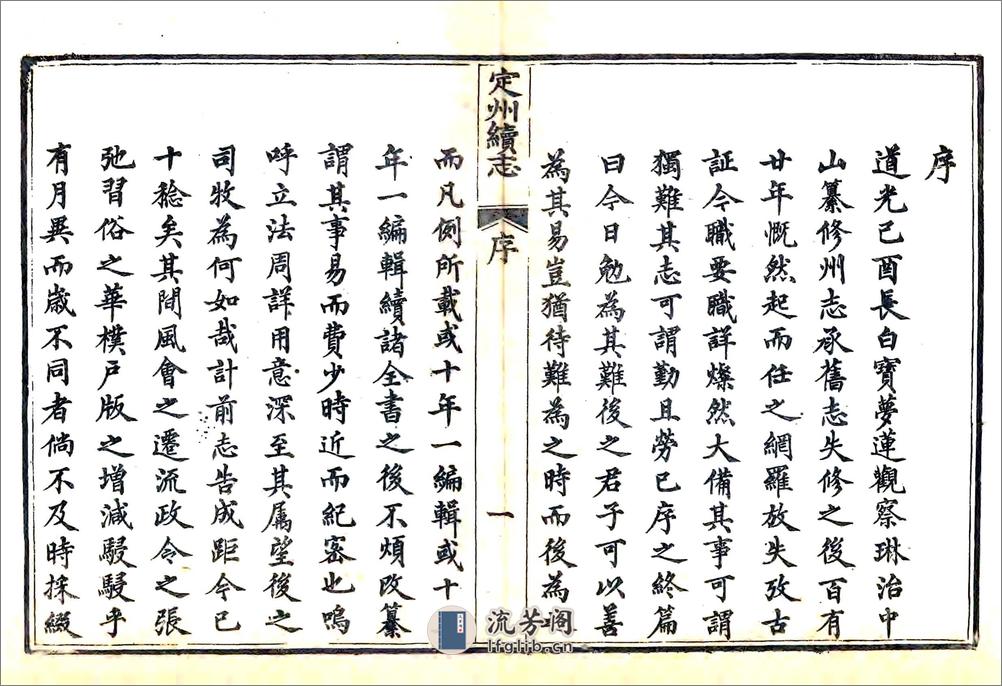 序
道光己酉長白寶夢蓮觀察琳治中
山纂修州志承舊志失修之後百有
廿年慨然起而任之網羅放失攷古
証今職要職詳燦然大備其事可謂
獨難其志可謂勤且勞已序之終篇
曰今日勉為其難後之君子可以善
為其易豈猶待難為之時而後為
定州續志
序
一
而凡例所載或十年一編輯或十
年一編輯續諸全書之後不煩改纂
謂其事易而費少時近而紀密也嗚
呼立法周詳用意深至其屬望後之
司牧為何如哉計前志告成距今已
十稔矣其間風會之遷流政令之張
弛習俗之華樸戶版之增減駸駸乎
有月異而歲不同者倘不及時採綴
流芳阁
lfglib.cn